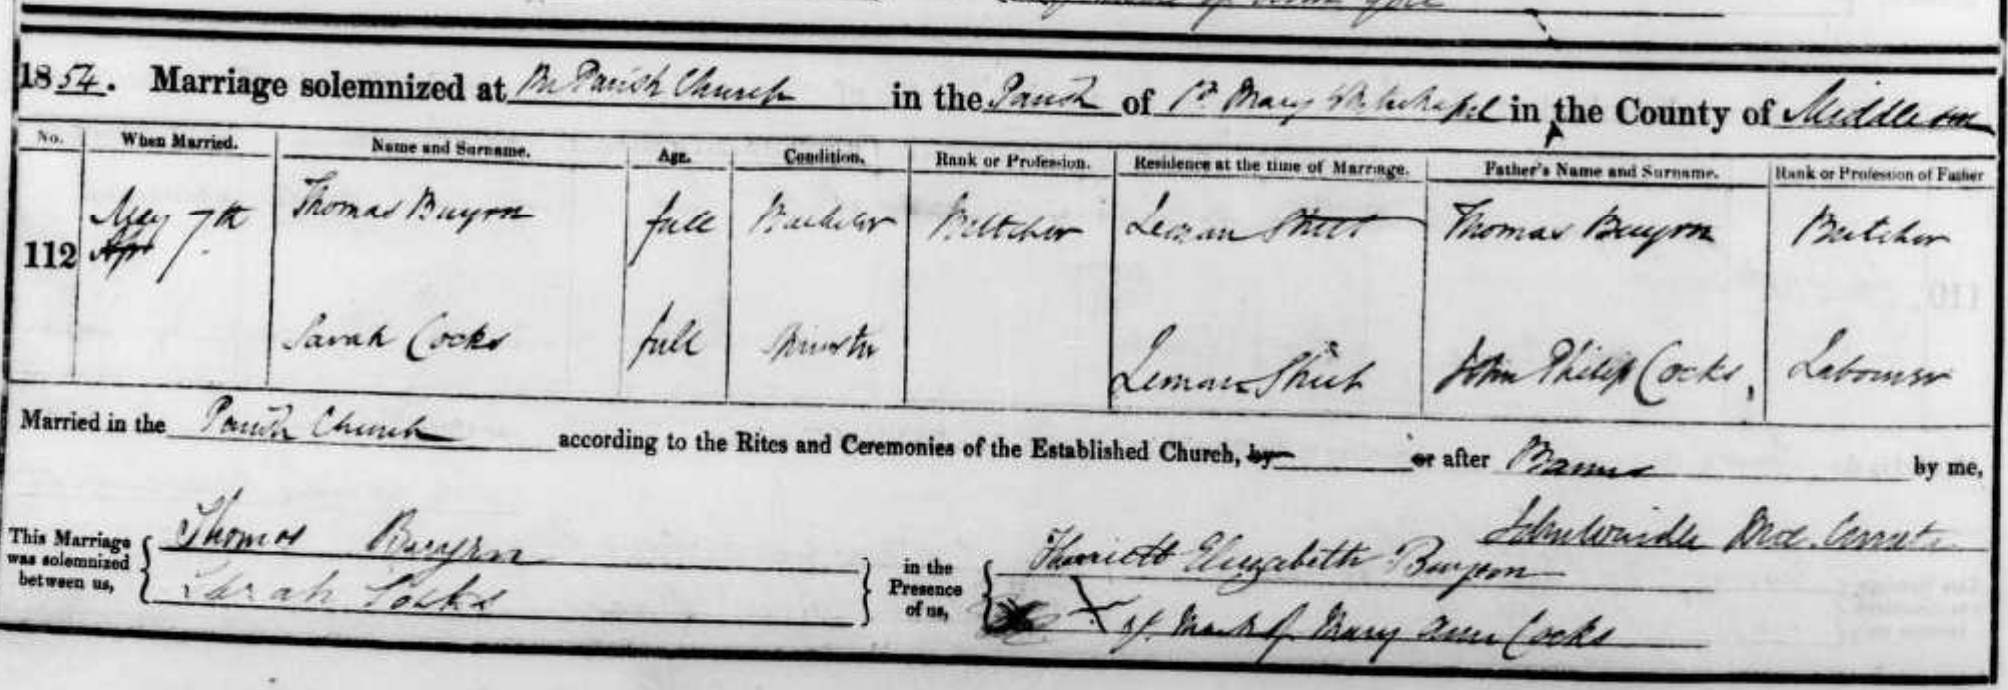 1854. Marriage solemnized at the Parish Church in the Parish of St Mary Whitechapel in the County of Middlesex
No. When Married. Name and Surname. Age. Condition. Rank or Profession. Residence at the time of Marriage. Father's Name and Surname. Rank or Profession of Father
112 May 7th Thomas Buyrn full Bachelor Butcher Leman Street Thomas Buyrn Butcher
Apr
Sarah Cocks full Spinster Leman Street John Philip Cocks, Labourer
Married in the Parish Church according to the Rites and Ceremonies of the Established Church, by or after Banns by me,
John Windle
This Marriage was solemnized between us, Thomas Buyrn in the Presence of us, Harriett Elizabeth Buyrn
Sarah Cocks X Mark of Mary Ann Cocks
110.